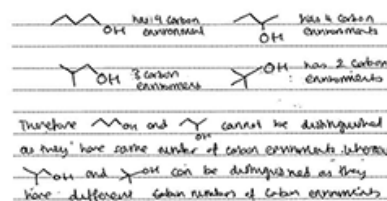 has 4 carbon environment
OH
has 4 carbon environments
OH
3 carbon environment
OH
has 2 carbon environments
OH
Therefore OH and OH cannot be distinguished
as they have same number of carbon environments whereas
OH and OH can be distinguished as they
have different carbon numbers of carbon environments